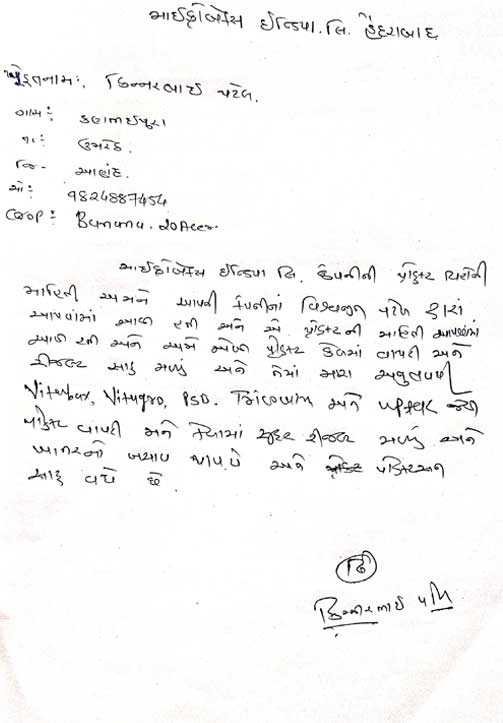 માઈક્રોબેક્સ ઈન્ડિયા. લિ. હૈદરાબાદ
ખેડૂતનામ:. કિન્નરભાઈ પટેલ.
ગામ: કણભઈપુરા
તા: ઉમરેઠ
જિ- આણંદ.
મો: 9824887454
Crop: Banana. 20 Acer.
માઈક્રોબેક્સ ઈન્ડિયા લિ. કંપનીની પ્રોડક્ટ વિશેની
માહિતી અમને આપની કંપનીનાં વિશ્વજીત પટેલ દ્વારા
આપવામાં આવી હતી અને એ પ્રોડક્ટની માહિતી આપવામાં
આવી હતી અને અમે એમની પ્રોડક્ટ કેળમાં વાપરી અને
રીજલ્ટ સારૂ મળ્યું અને તેમાં મારા અનુભવની
Vitormax, Vitugro, PSD. Tricomax અને જેવી
પ્રોડક્ટ વાપરી અને તેમાં સુંદર રીજલ્ટ મળ્યું અને
ખાતરનો બચાવ થાય છે અને પ્રોડક્શન
સારૂ વધે છે.
કિન્નરભાઈ પટેલ